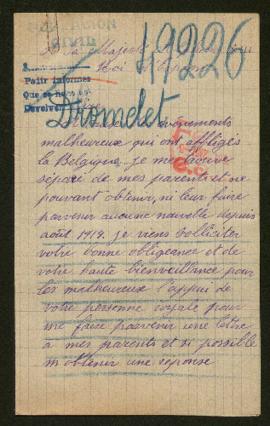 49226
A sa Majesté
Roi d'Espagne
Pedir informes
Que se
Devolver
Dromelet
Sire
événements
malheureux qui ont affligés
la Belgique, je me trouve
séparé de mes parents et ne
pouvant obtenir, ni leur faire
parvenir aucune nouvelle depuis
août 1914. je viens solliciter
votre bonne obligeance et de
votre haute bienveillance pour
les malheureux l'appui de
votre personne royale pour
me faire parvenir une lettre
à mes parents et si possible
m'obtenir une réponse